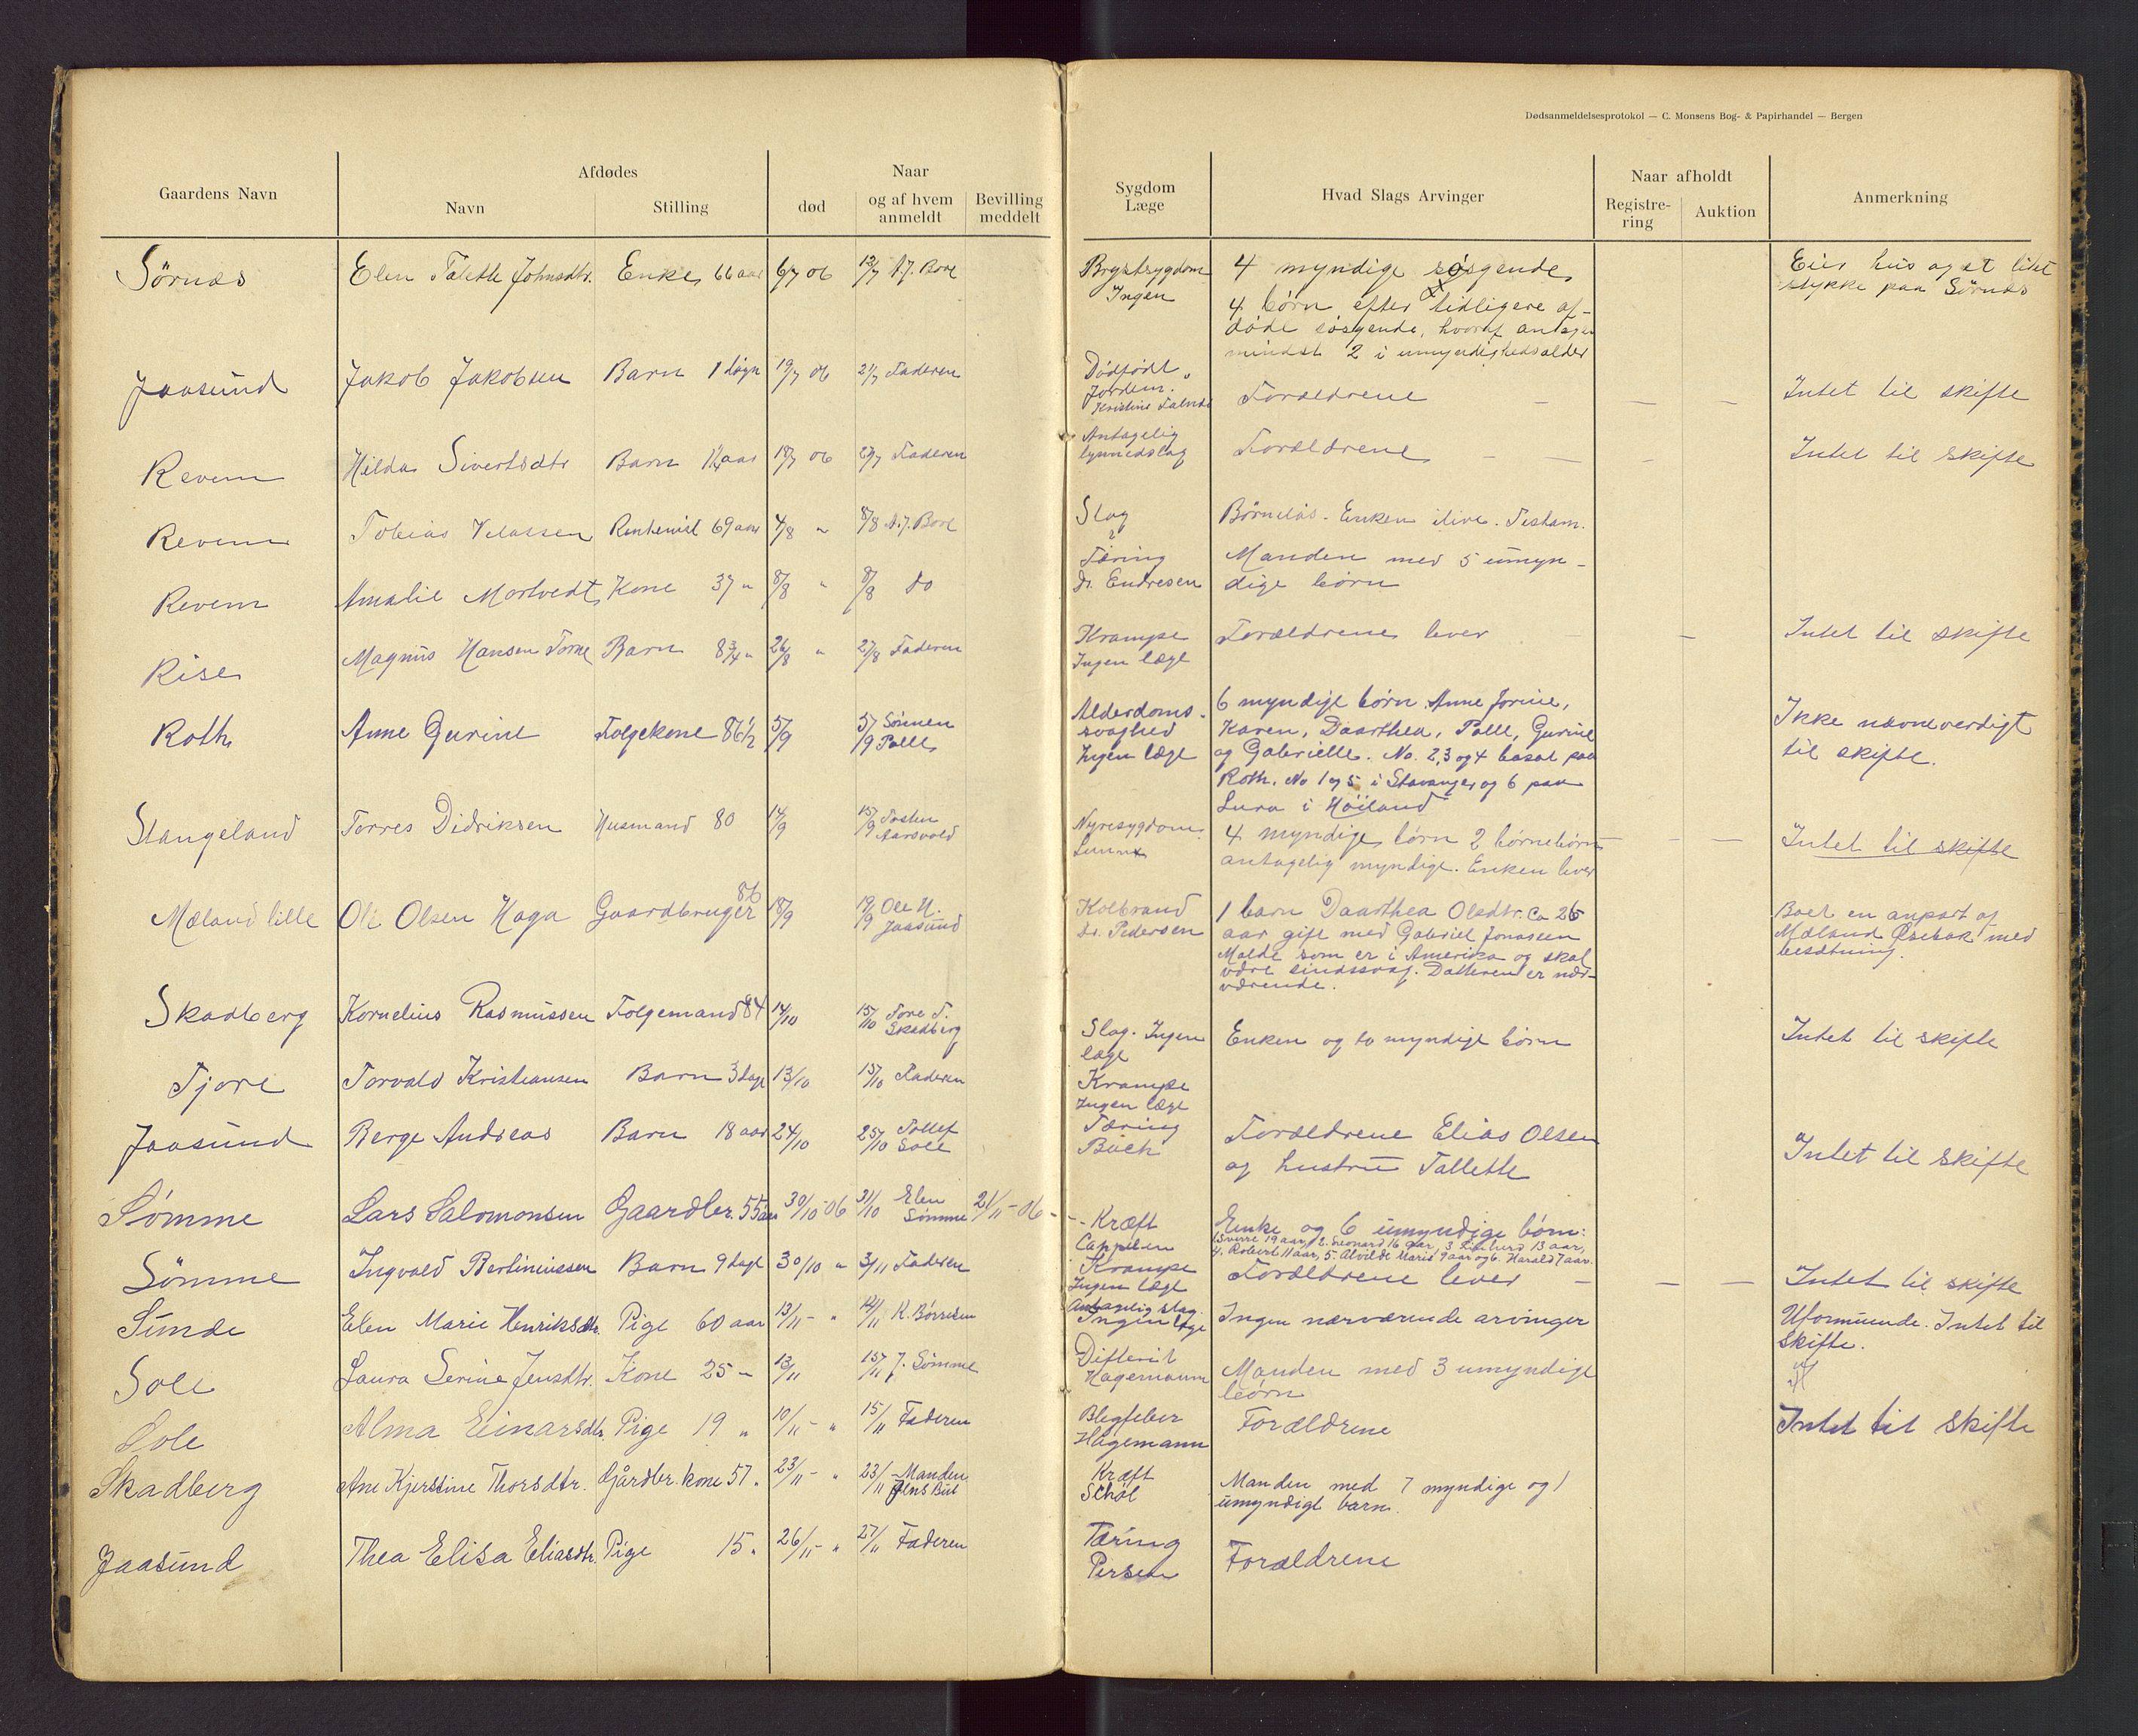 Dødsanmeldelsesprotokol — C. Monsens Bog- & Papirhandel — Bergen
Gaardens Navn
Afdødes
Navn
Stilling
Naar
død
og af hvem anmeldt
Bevilling meddelt
Sygdom
Læge
Hvad Slags Arvinger
Naar afholdt
Registrering
Auktion
Anmerkning
Sörnæs Elen Talette Johnsdtr. Enke 66 aar 6/7 06 12/7 A.J. Bore Brystsygdom Ingen 4 myndige søsgende Eier hus og et litet
4 børn efter tidligere af- stykke paa Sörnæs
døde søsgende, hvoraf
mindst 2 i umyndighedsalder
Jaasund Jakob Jakobsen Barn 1 døgn 19/7 06 21/7 Faderen Dødfødt Jordem. Kristine Forældrene — — — Intet til skifte
Revem Hilda Sivertsdtr Barn 18/7 06 Faderen Antagelig lynnedslag Forældrene — — — Intet til skifte
Revem Tobias Rentenist 69 aar 4/8 " 8/8 A.J. Bore Slag Børneløs. Enken ilive. Testam.
Revem Amalie Mortvedt Kone 37 " 8/8 " 8/8 do Tæring Dr. Endresen Manden med 5 umyn-
dige børn
Rise Magnus Hansen Barn 8 3/4 " 26/8 " 27/8 Faderen Krampe Ingen læge Forældrene lever — Intet til skifte
Roth Anne Gurine Folgekone 86 1/2 5/9 5/9 Sønnen Palle Alderdoms- svaghed Ingen læge 6 myndige børn Anne Jorine, Ikke nævneverdigt
Karen, Daarthea, Palle, Gurine til skifte.
og Gabrielle. No. 2, 3 og 4 bosat paa
Roth. No 1 og 5 i Stavanger og 6 paa
Lura i Høiland
Stangeland Torres Didriksen Husmand 80 14/9 15/9 Aarsvold Nyresygdom 4 myndige børn 2 børnebørn — — Intet til skifte
antagelig myndige. Enken lever
Mæland lille Ole Olsen Haga Gaardbruger 86 18/9 19/9 Ole H. Jaasund Kolbrand Dr. Pedersen 1 barn Daarthea Olsdtr. Ca 26 Boet en anpart af
aar gift med Gabriel Jonassen Mæland med
Malde som er i Amerika og skal besætning.
være sindssvag. Datteren er nær-
værende.
Skadberg Kornelius Rasmussen Folgemand 84 14/10 15/10 Tore T. Skadberg Slag. Ingen læge Enken og to myndige børn Intet til skifte
Tjore Torvald Kristiansen Barn 3 dage 13/10 15/10 Faderen Krampe Ingen læge
Jaasund Berge Andreas Barn 18 aar 24/10 25/10 Tollef Sole Tæring Buch Forældrene Elias Olsen Intet til skifte
og hustru Tallette
Sømme Lars Salomonsen Gaardbr. 55 aar 30/10-06 31/10 Elen Sømme 21/11-06- Kræft Cappelen Enke og 6 umyndige børn:
19 aar, 2. Leonard 16 aar, 3 13 aar,
4. Robert 11 aar, 5. Alvilde Marie 9 aar og 6. Harald 7 aar.
Sømme Ingvald Bertiniussen Barn 9 dage 30/10 " 3/11 Faderen Krampe Ingen læge Forældrene lever — — — Intet til skifte
Sunde Elen Marie Henriksdtr. Pige 60 aar 13/11 - " 14/11 K. Børresen Antagelig slag. Ingen læge Ingen nærværende arvinger Uformuende. Intet til
skifte.
Sole Laura Serine Jensdtr. Kone 25 " 13/11 15/11 J. Sømme Difterit Hagemann Manden med 3 umyndige
børn
Sole Alma Einarsdtr. Pige 19 " 10/11 - " 15/11 Faderen Blegfeber Hagemann Forældrene Intet til skifte
Skadberg Ane Kjerstine Thorsdtr. Gårdbr. kone 57 " 23/11 - " 23/11 Manden Kræft Schøl Manden med 7 myndige og 1
umyndigt barn.
Jaasund Thea Elisa Eliasdtr. Pige 15 " 26/11 - " 27/11 Faderen Tæring Forældrene